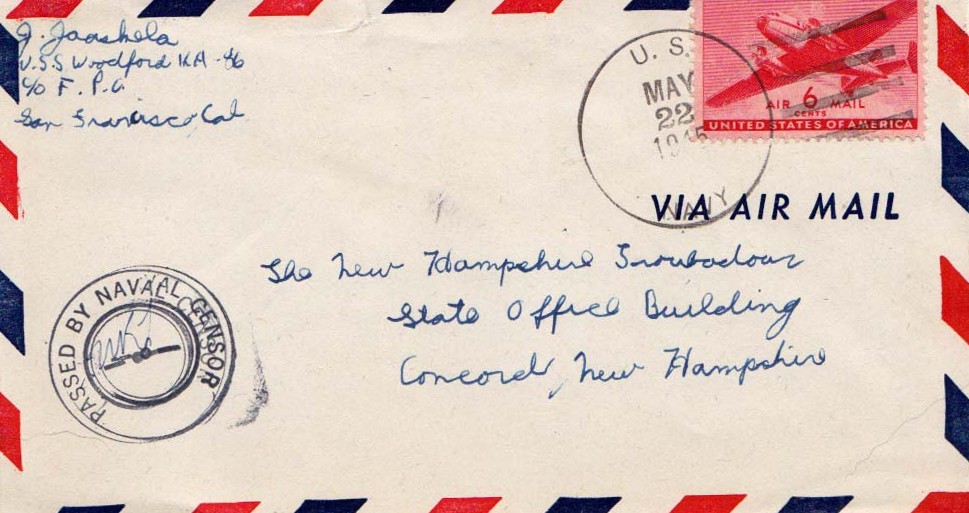 J. Jaaskela
U.S.S Woodford KA-86
c/o F. P. O.
San Francisco Cal
U. S.
MAY
22
1945
NAVY
AIR 6 MAIL
CENTS
UNITED STATES OF AMERICA
VIA AIR MAIL
The New Hampshire Troubadour
State Office Building
Concord, New Hampshire
PASSED BY NAVAL CENSOR